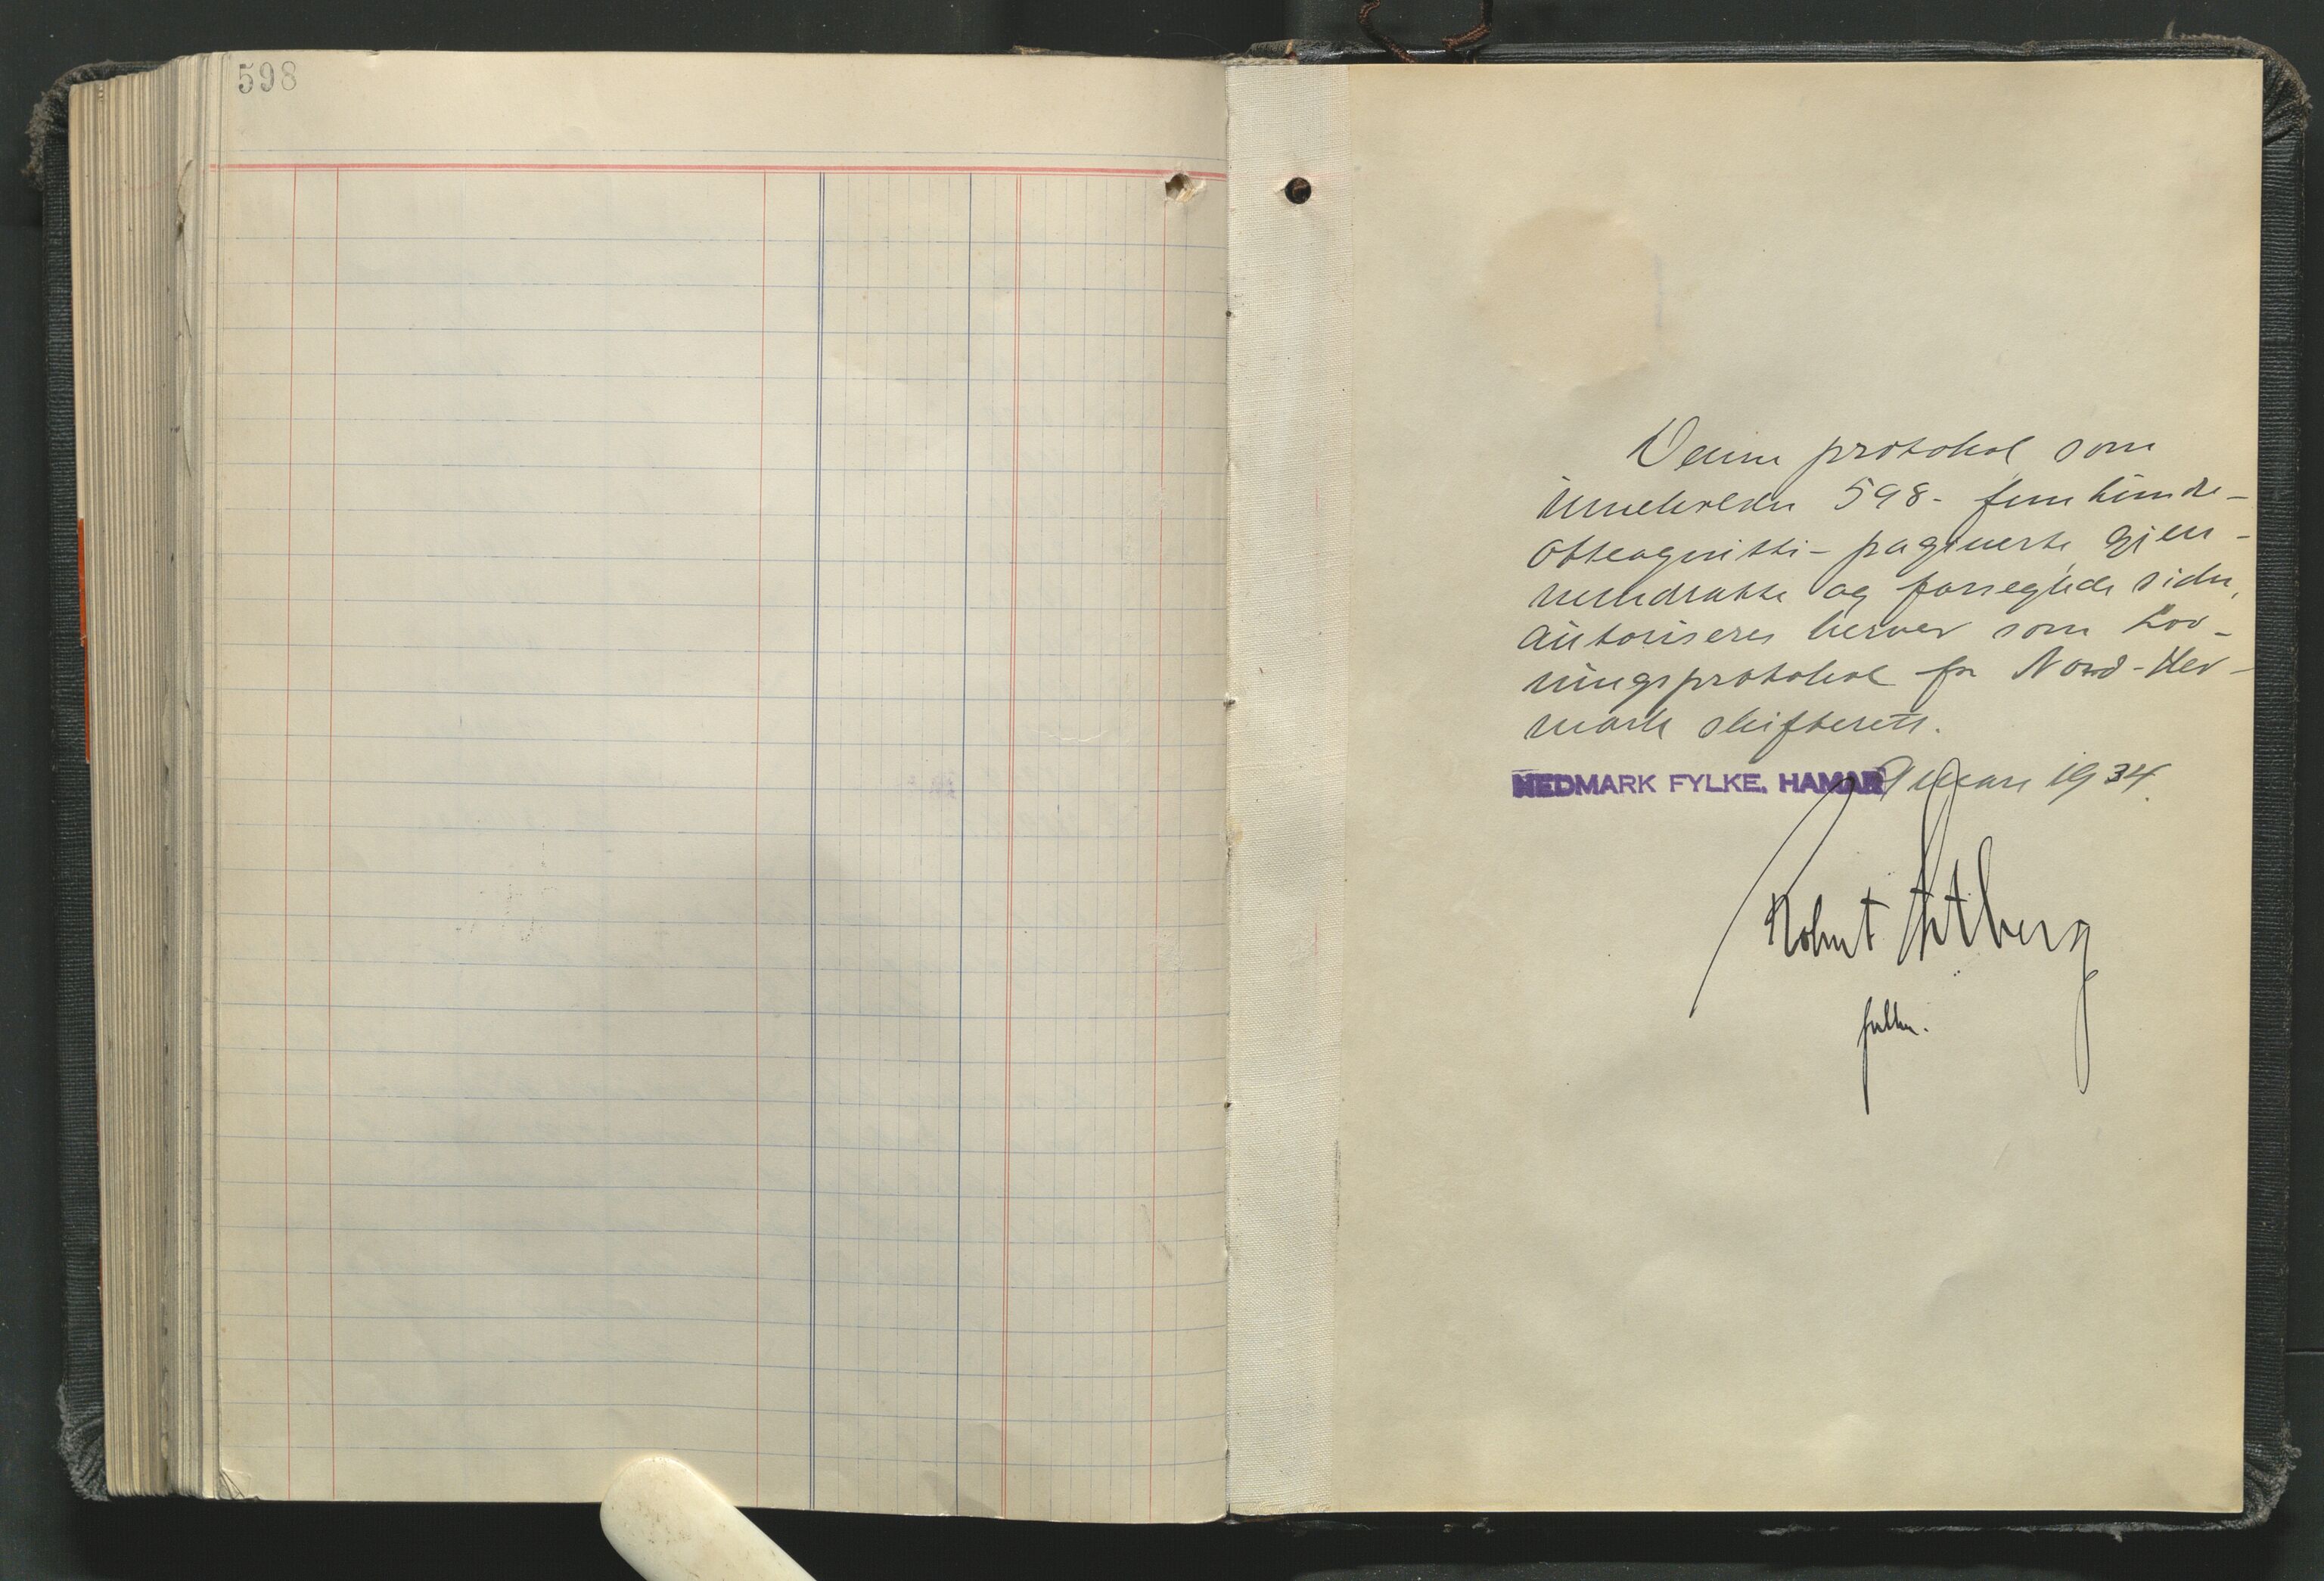 598
Denne protokol som
inneholder 598 - femhundre-
otteognitti - paginerte, gjen-
nemdratte og forseglede sider,
autoriseres herved som
ningsprotokol for Nord-Hed-
mark skifterett.
HEDMARK FYLKE, HAMAR 1934.
Robert